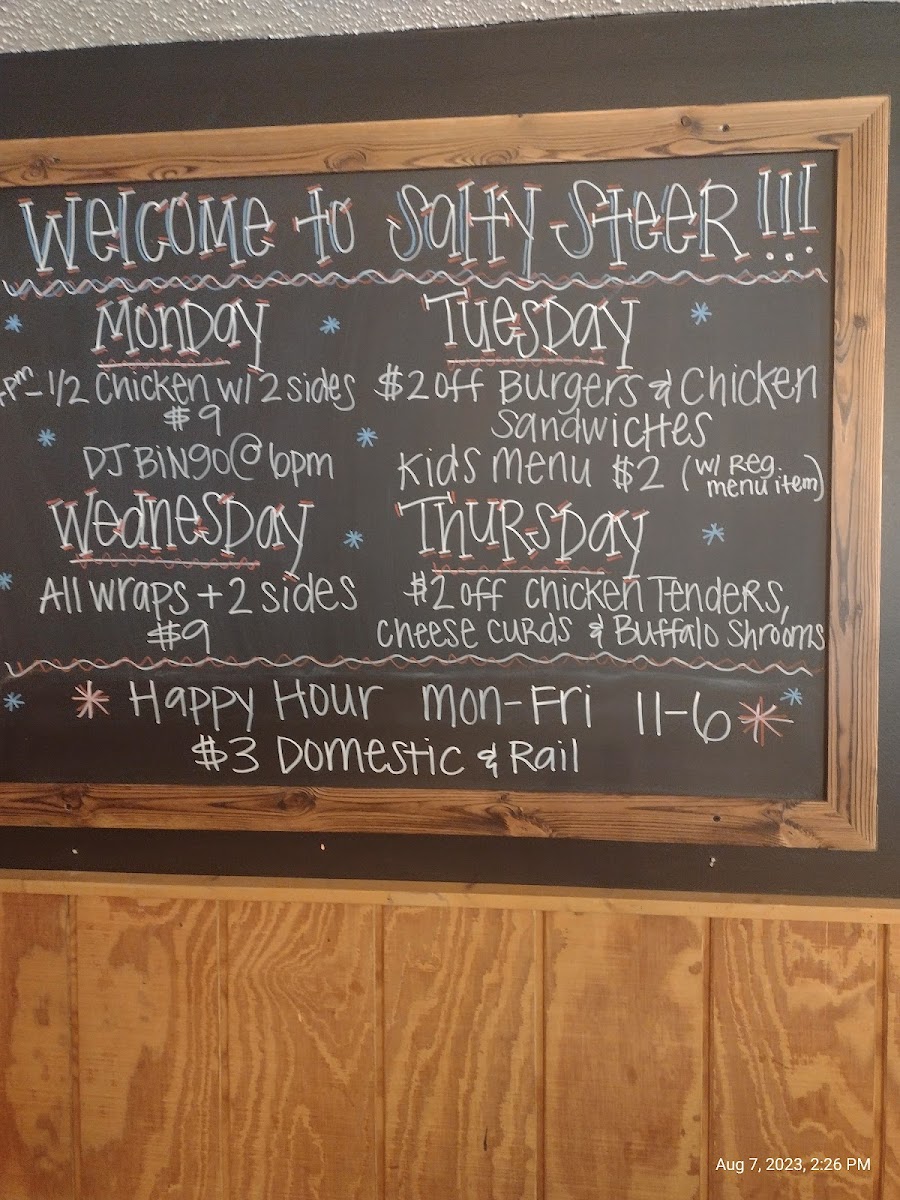 Welcome to Salty Steer!!!
Monday
1/2 Chicken w/ 2 sides
$9
DJ Bingo @ 6pm
Tuesday
$2 off Burgers & Chicken
Sandwiches
Kids menu $2 (w/ Reg.
menu item)
Wednesday
All wraps + 2 sides
$9
Thursday
$2 off Chicken Tenders,
Cheese curds & Buffalo Shrooms
Happy Hour Mon-Fri 11-6
$3 Domestic & Rail
Aug 7, 2023, 2:26 PM